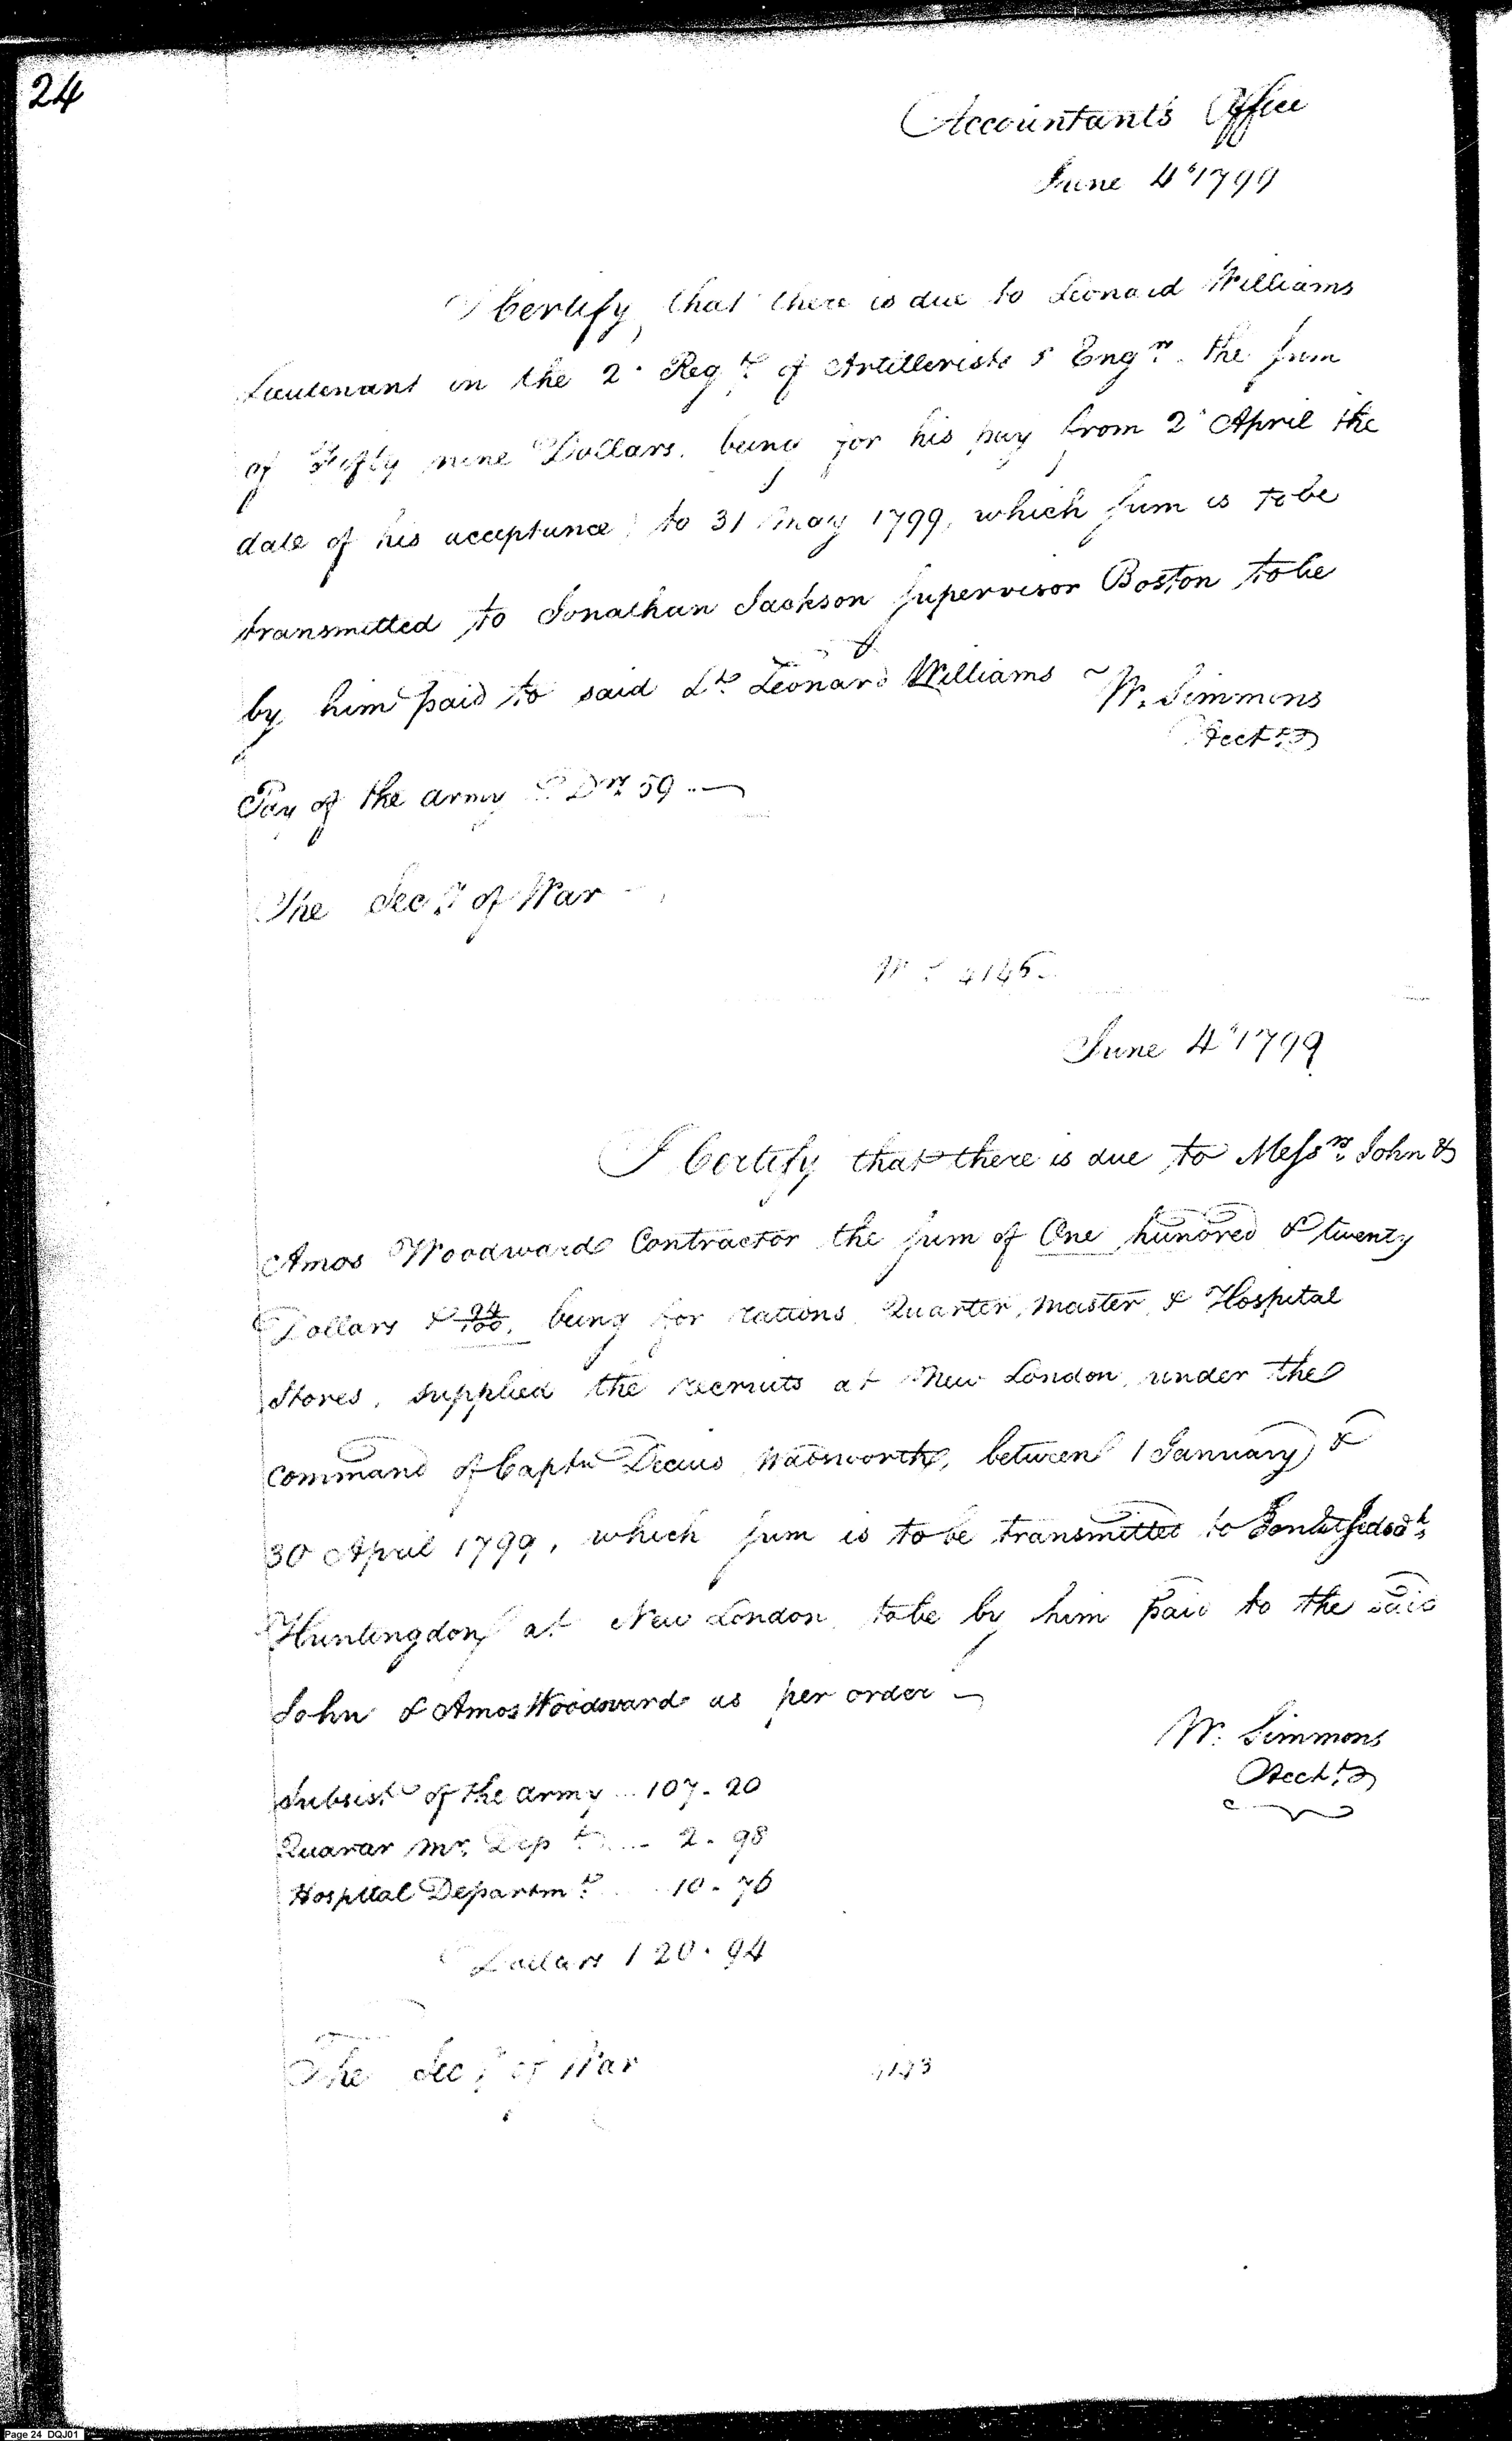 24
Accountant's Office
June 4th 1799
I Certify that there is due to Leonard Williams
Lieutenant in the 2d Regt of Artillerists & Engrs the sum
of Fifty nine Dollars, being for his pay from 2d April the
date of his acceptance, to 31 May 1799, which sum is to be
transmitted to Jonathan Jackson supervisor Boston to be
by him paid to said Lt. Leonard Williams
W. Simmons
Acct.
Pay of the army Drs 59..
The Secy of War
June 4th 1799
I Certify that there is due to Messrs. John &
Amos Woodward Contractor the sum of One hundred & twenty
Dollars & 94/100, being for rations, Quarter, master, & Hospital
Stores, supplied the recruits at New London, under the
command of Captn Decius Wadsworth, between 1 January &
30 April 1799, which sum is to be transmitted to
Huntingdon at New London, to be by him paid to the said
John & Amos Woodward as per order
W. Simmons
Acct.
Subsist. of the army ... 107. 20
Quarar Mr. Dept .... 2. 98
Hospital Departmt ... 10. 76
Dollars 120. 94
The Secy of War
Page 24 DQJ01